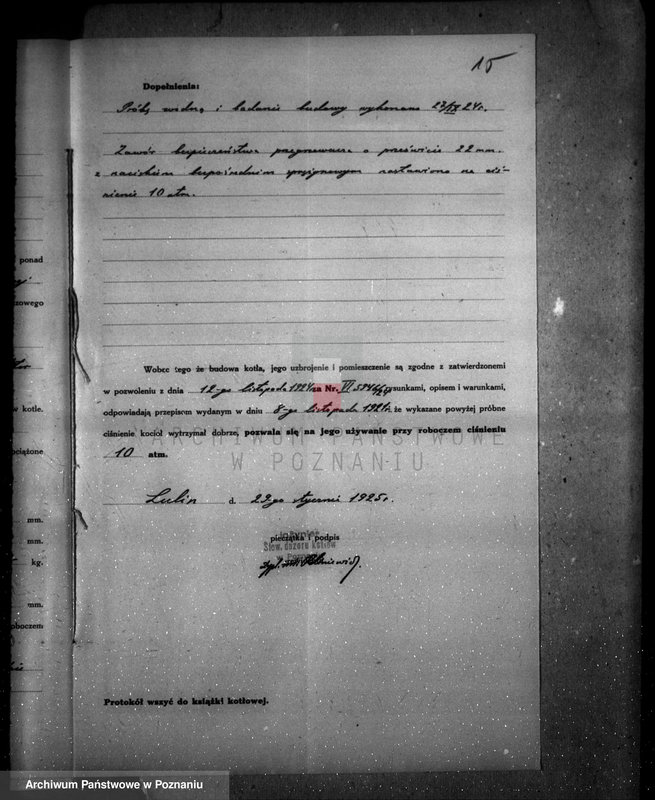 15
Dopełnienia:
Próbę wodną i badanie budowy wykonano 27/IX 24r.
Zawór bezpieczeństwa przegrzewacza o prześwicie 22 mm.
z naciskiem bezpośrednim sprężynowym nastawiono na ciś-
nienie 10 atm.
Wobec tego że budowa kotła, jego uzbrojenie i pomieszczenie są zgodne z zatwierdzonemi
w pozwoleniu z dnia 12-go listopada 1924 za Nr. VI rysunkami, opisem i warunkami,
odpowiadają przepisom wydanym w dniu 8-go listopada 1921r. że wykazane powyżej próbne
ciśnienie kocioł wytrzymał dobrze, pozwala się na jego używanie przy roboczem ciśnieniu
10 atm.
d. 29-go stycznia 1925r.
pieczątka i podpis
Inżynier
Stow. dozoru kotłów
w Poznaniu
Protokół wszyć do książki kotłowej.
ponad
zowego
w kotle.
ociążone
mm.
mm.
kg.
mm.
oboczem
ARCHIWUM PAŃSTWOWE
W POZNANIU
Archiwum Państwowe w Poznaniu